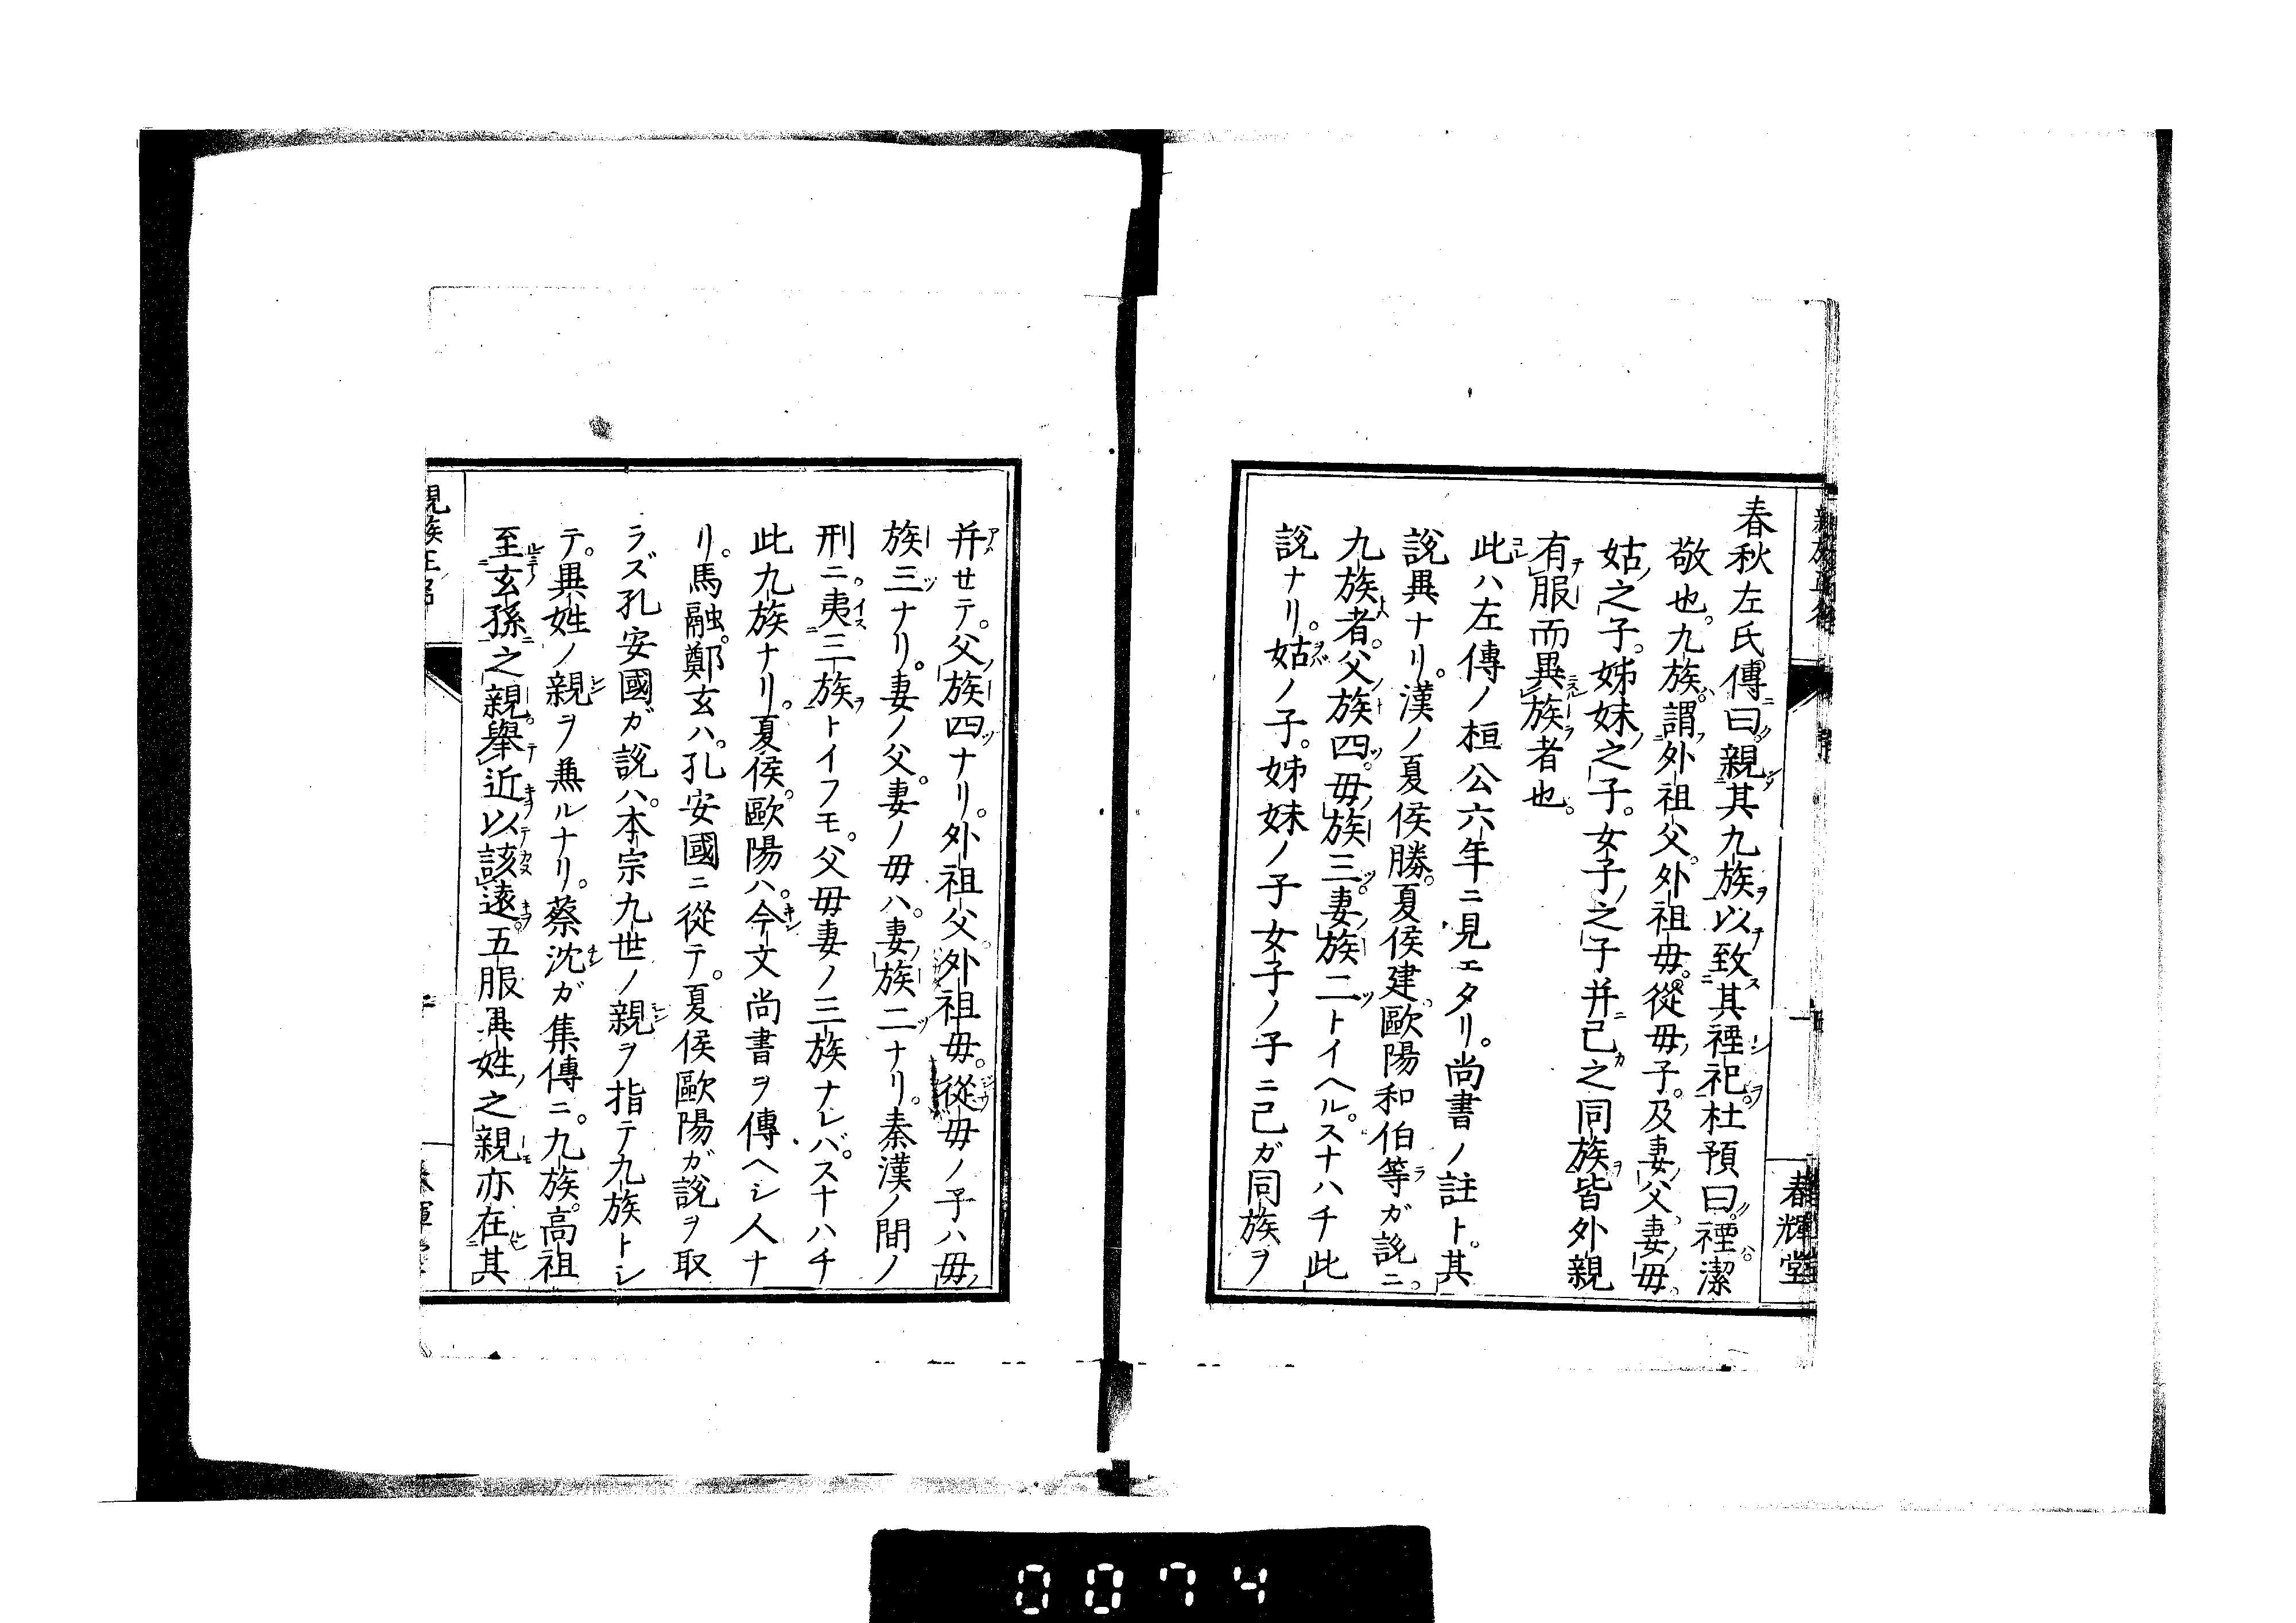 春輝堂
春秋左氏傳曰。親其九族以致其禋祀。杜預曰。禋潔
敬也。九族。謂外祖父。外祖母。從母子。及妻父妻母。
姑之子。姊妹之子。女子之子并己之同族皆外親
有服而異族者也。
此ハ左傳ノ桓公六年ニ見エタリ。尚書ノ註ト。其
說異ナリ。漢ノ夏侯勝。夏侯建。歐陽和伯等ガ說ニ。
九族者。父族四。母族三。妻族二トイヘル。スナハチ此
說ナリ。姑ノ子。姊妹ノ子女子ノ子ニ己ガ同族ヲ
并セテ。父族四ナリ。外祖父。外祖母。從母ノ子ハ母
族三ナリ。妻ノ父。妻ノ母ハ。妻族二ナリ。秦漢ノ間ノ
刑ニ。夷三族トイフモ。父母妻ノ三族ナレバ。スナハチ
此九族ナリ。夏侯。歐陽ハ。今文尚書ヲ傳ヘシ人ナ
リ。馬融。鄭玄ハ。孔安國ニ從テ。夏侯歐陽ガ說ヲ取
ラズ孔安國ガ說ハ。本宗九世ノ親ヲ指テ九族トシ
テ。異姓ノ親ヲ兼ルナリ。蔡沈ガ集傳ニ。九族。高祖
至玄孫之親。舉近以該遠。五服異姓之親亦在其
0074